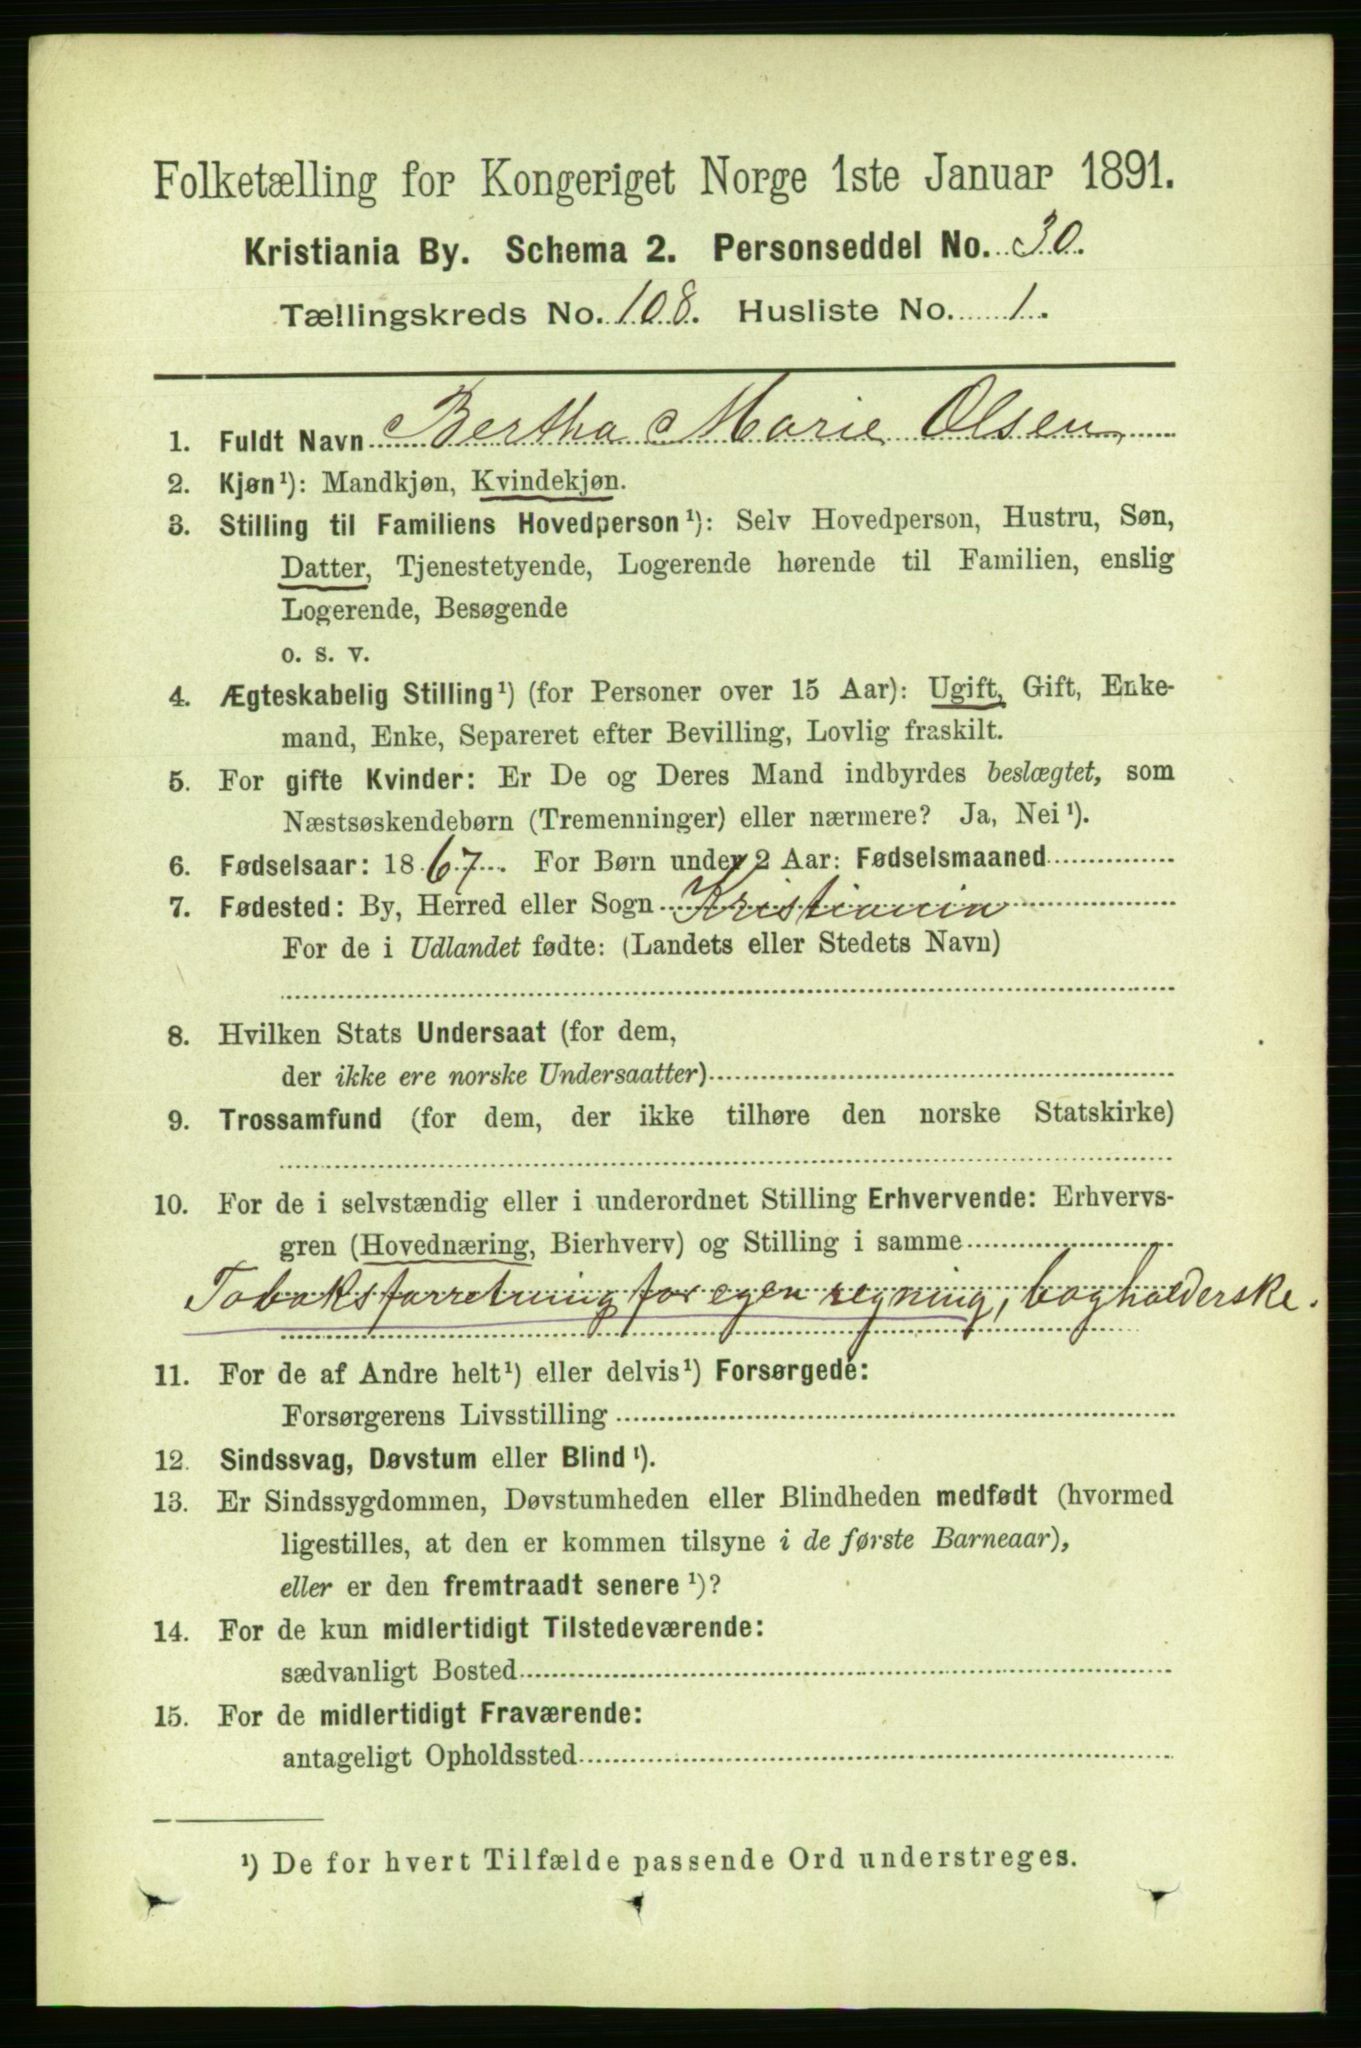 Folketælling for Kongeriget Norge 1ste Januar 1891.
Kristiania By. Schema 2. Personseddel No. 30.
Tællingskreds No. 108. Husliste No. 1.
1. Fuldt Navn Bertha Marie Olsen
2. Kjøn¹): Mandkjøn, Kvindekjøn.
3. Stilling til Familiens Hovedperson¹): Selv Hovedperson, Hustru, Søn,
Datter, Tjenestetyende, Logerende hørende til Familien, enslig
Logerende, Besøgende
o. s. v.
4. Ægteskabelig Stilling¹) (for Personer over 15 Aar): Ugift, Gift, Enke-
mand, Enke, Separeret efter Bevilling, Lovlig fraskilt.
5. For gifte Kvinder: Er De og Deres Mand indbyrdes beslægtet, som
Næstsøskendebørn (Tremenninger) eller nærmere? Ja, Nei¹).
6. Fødselsaar: 1867. For Børn under 2 Aar: Fødselsmaaned
7. Fødested: By, Herred eller Sogn Kristiania
For de i Udlandet fødte: (Landets eller Stedets Navn)
8. Hvilken Stats Undersaat (for dem,
der ikke ere norske Undersaatter)
9. Trossamfund (for dem, der ikke tilhøre den norske Statskirke)
10. For de i selvstændig eller i underordnet Stilling Erhvervende: Erhvervs-
gren (Hovednæring, Bierhverv) og Stilling i samme
Tobaksforretning for egen regning, bogholderske.
11. For de af Andre helt¹) eller delvis¹) Forsørgede:
Forsørgerens Livsstilling
12. Sindssvag, Døvstum eller Blind¹).
13. Er Sindssygdommen, Døvstumheden eller Blindheden medfødt (hvormed
ligestilles, at den er kommen tilsyne i de første Barneaar),
eller er den fremtraadt senere¹)?
14. For de kun midlertidigt Tilstedeværende:
sædvanligt Bosted
15. For de midlertidigt Fraværende:
antageligt Opholdssted
¹) De for hvert Tilfælde passende Ord understreges.